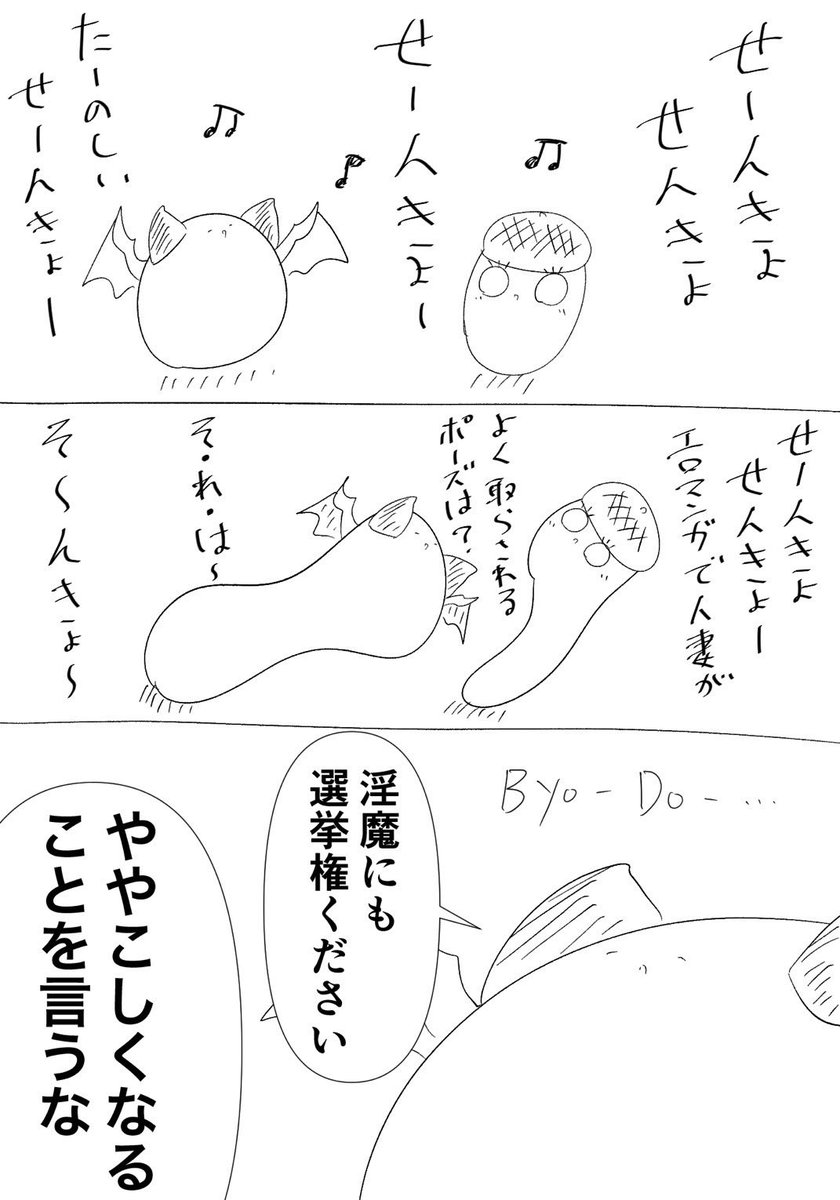 せーんきょ
せんきょ
せーんきょー
たーのしい
せーんきょー
せーんきょ
せんきょー
エロマンガで人妻が
よく取らされる
ポーズは？
そ・れ・は〜
そ〜んきょ〜
Byo-Do-...
淫魔にも
選挙権ください
ややこしくなる
ことを言うな